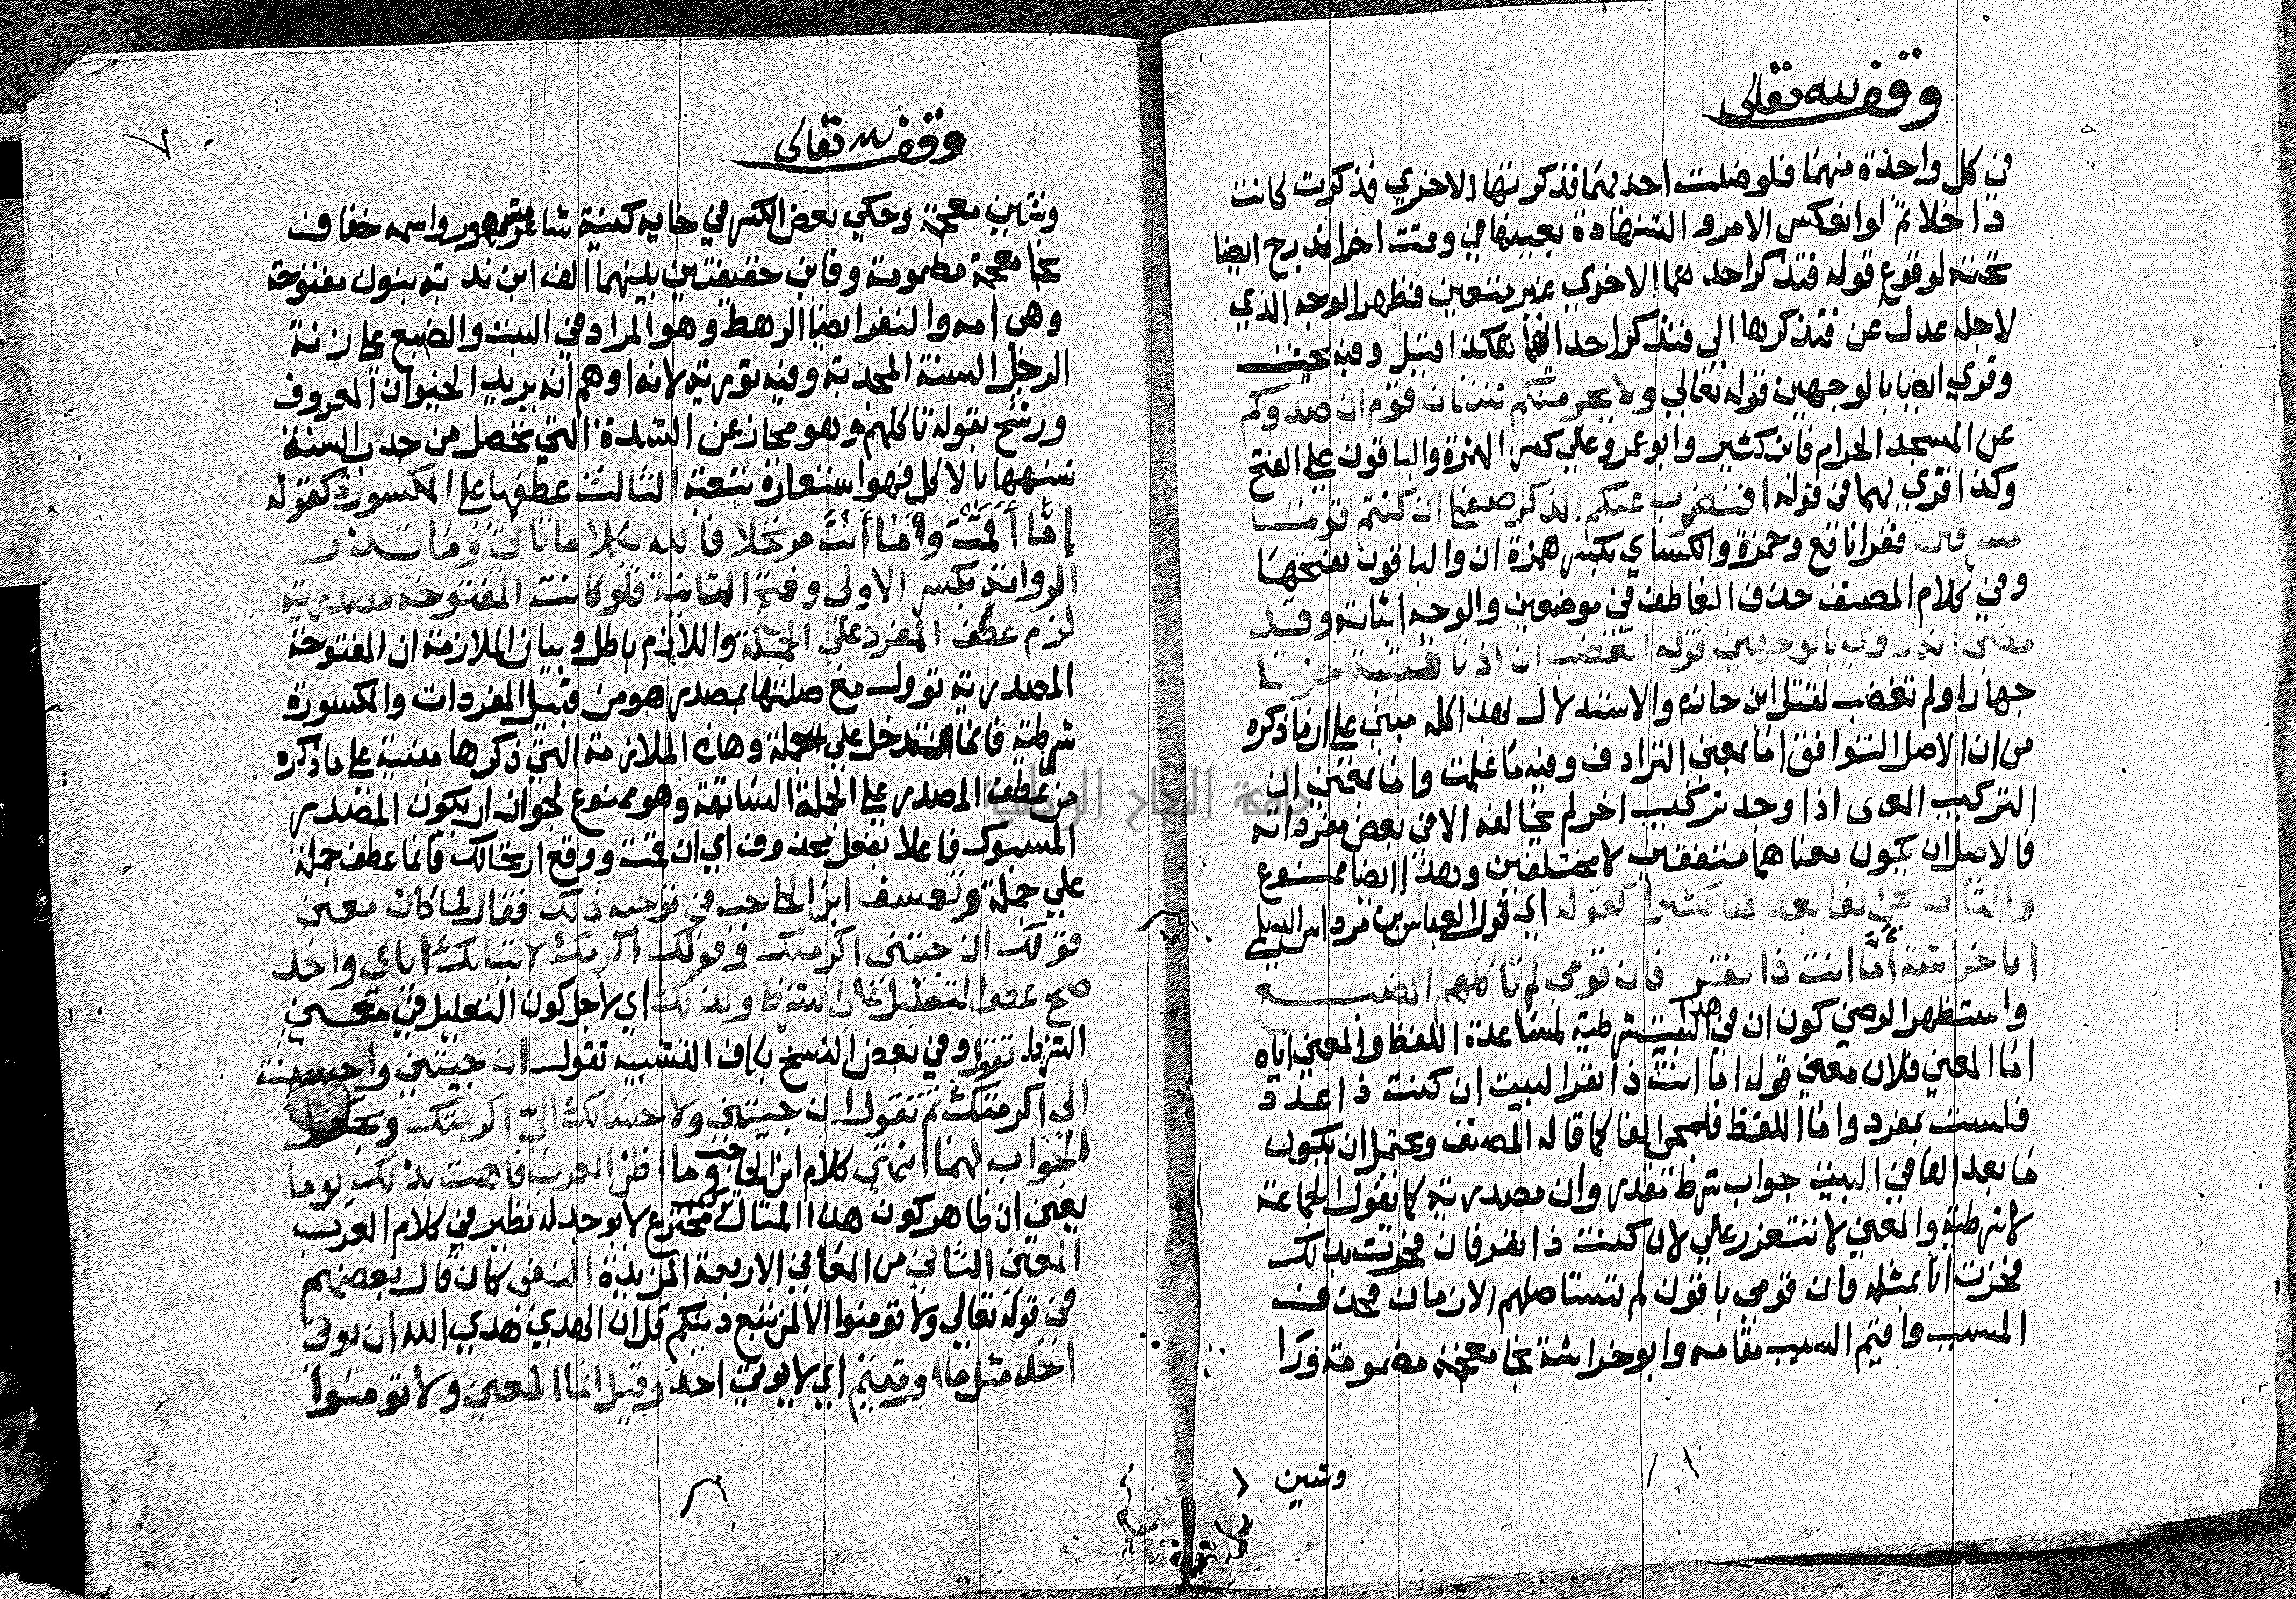 وقف لله تعالى
في كل واحدة منهما فلو ضلت احديهما فذكرتها الاخري فذكرت لكانت
داخلا ثم لو انعكس الامر والشهادة بعينها في وقت اخر اندرج ايضا
تحته لوقوع قوله فتذكر احديهما الاخري غير متعين فظهر الوجه الذي
لاجله عدل عن فتذكرها الي فتذكر احداهما هكذا قيل وفيه بحث
وقري ايضا بالوجهين قوله تعالي ولا يجرمنكم شنئان قوم ان صدوكم
عن المسجد الحرام فابن كثير وابو عمرو علي كسر الهمزة والباقون علي الفتح
وكذا قري بهما في قوله افنضرب عنكم الذكر صفحا ان كنتم قوما
مسرفين فقرا نافع وحمزة والكساي بكسر همزة ان والباقون بفتحها
وفي كلام المصنف حذف العاطف في موضعين والوجه اثباته وقد
مضى انه روي بالوجهين قوله اتغضب ان اذنا قتيبة حزتا
جهارا ولم تغضب لقتل ابن حازم والاستدلال بهذا كله مبني علي ما ذكره
من ان الاصل التوافق اما بمعني الترادف وفيه ما علمت واما بمعني ان
التركيب اذا وجد تركيب اخر لم يخالفه الا في بعض مفرداته
فالاصل ان يكون معناهما متفقين لا مختلفين وهذا ايضا ممنوع
والثاني مجي الفا بعدها كثيرا كقوله اي قول العباس بن مرداس السلمي
ابا خراشة أمّا انت ذا نفر فان قومي لم تاكلهم الضبع
واستظهر الرضي كون ان في هذا البيت شرطية لمساعدة اللفظ والمعني اياه
اما المعني فلان معني قوله اما انت ذا نفر البيت ان كنت ذا عدد
فلست بمفرد واما اللفظ فلمجي الفا كما قاله المصنف ويحتمل ان يكون
ما بعد الفا في البيت جواب شرط مقدر وان مصدرية كما تقول الجماعة
لا شرطية والمعني لا تتعزز علي لان كنت ذا نفر فان فخرت بذلك
فخرت انا بمثله فان قومي باقون لم تستاصلهم الازمان فحذف
المسبب واقيم السبب مقامه وابو خراشة بخا معجمة مضمومة ورا
وشين
وقف لله تعالى
وشين معجمة وحكي بعض الكسر في خايه كنية شاعر مشهور واسمه خفاف
بخا معجمة مضمومة وفاين خفيفتين بينهما الف ابن ندبة بنون مفتوحة
وهي امه والنفر ايضا الرهط وهو المراد في البيت والضبع علي زنة
الرجل السنة المجدبة وفيه تورية لانه اوهم انه يريد الحيوان المعروف
ورشح بقوله تاكلهم وهو مجاز عن الشدة التي تحصل من جدب السنة
شبهها بالاكل فهو استعارة تبعية الثالث عطفها علي المكسورة كقوله
إمّا أقمتَ وأمّا أنتَ مرتحلا فالله يكلا ما تاتي وما تذر
الرواية بكسر الاولى وفتح الثانية فلو كانت المفتوحة مصدرية
لزم عطف المفرد على الجملة واللازم باطل وبيان الملازمة ان المفتوحة
المصدرية تؤول مع صلتها بمصدر هو من قبيل المفردات والمكسورة
شرطية فانما تدخل علي الجملة وهذه الملازمة التي ذكرها مبنية علي ما ذكره
من عطف المصدر علي الجملة السابقة وهو ممنوع لجواز ان يكون المصدر
المسبوك فاعلا بفعل محذوف اي ان قمت ووقع ارتحالك فانما عطف جملة
علي جملة وتعسف ابن الحاجب في توجيه ذلك فقال لما كان معني
قولك ان جيتني اكرمتك وقولك اكرمك لاتيانك اياي واحد
صح عطف التعليل على الشرط ولذلك اي لاجل كون التعليل في معني
الشرط تقول وفي بعض النسخ بكاف التشبيه تقول ان جيتني واحسنت
الى اكرمتك ثم تقول ان جيتني ولاحسانك الى اكرمتك وتجعل
الجواب لهما انتهي كلام ابن الحاجب وما اظن العرب فاهت بذلك يوما
يعني ان ظاهر كون هذا المثال تركيب مخترع لا يوجد له نظير في كلام العرب
المعني الثاني من المعاني الاربعة المزيدة النفي كان قال بعضهم
في قوله تعالي ولا تومنوا الا لمن تبع دينكم قل ان الهدي هدي الله ان يوتى
احد مثل ما اوتيتم اي لا يوتي احد وقيل انما المعني ولا تومنوا